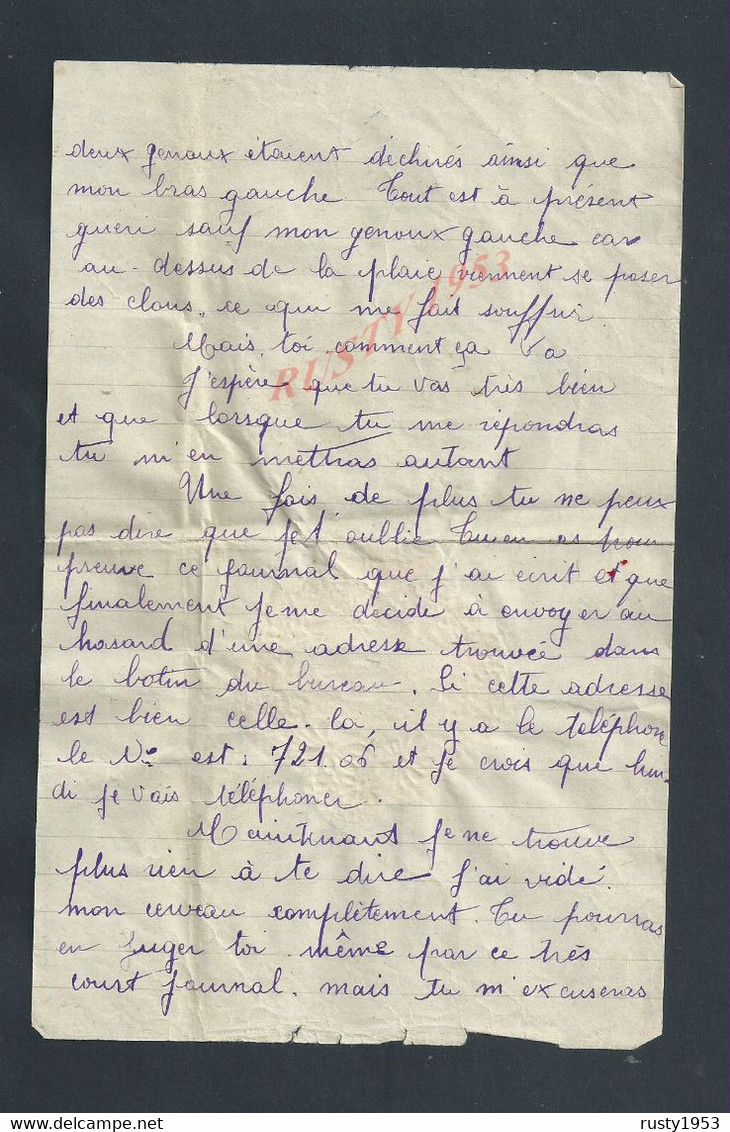 deux genoux étaient déchirés ainsi que
mon bras gauche. Tout est à présent
guéri sauf mon genoux gauche car
au-dessus de la plaie viennent se poser
des clous, ce qui me fait souffrir.
Mais, toi comment ça va
J'espère que tu vas très bien
et que lorsque tu me répondras
tu m'en mettras autant
Une fois de plus tu ne peux
pas dire que je t'oublie Tu en as pour
preuve ce journal que j'ai écrit et que
finalement je me décide à envoyer au
hasard d'une adresse trouvée dans
le botin du bureau. Si cette adresse
est bien celle-là, il y a le téléphone
le No est: 721.06 et je crois que lun-
di je vais téléphoner.
Maintenant je ne trouve
plus rien à te dire j'ai vidé
mon cerveau complètement. Tu pourras
en juger toi même par ce très
court journal. mais tu m'excuseras
RUSTY 1953
delcampe.net
rusty1953